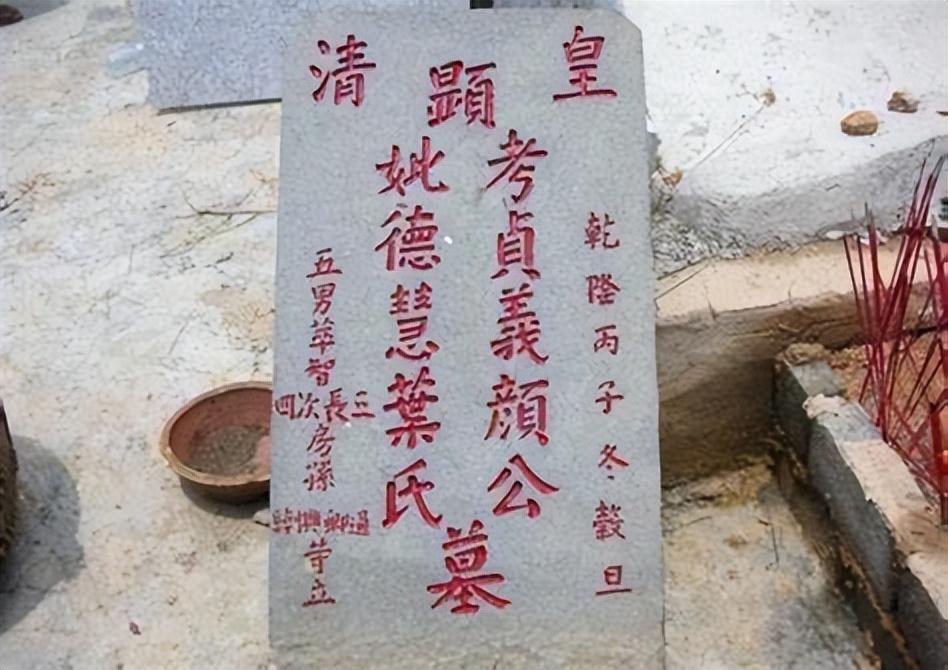 皇清
乾隆丙子冬穀旦
顯
考貞義顏公
妣德慧葉氏
墓
五男萃智三長次四房孫
等立